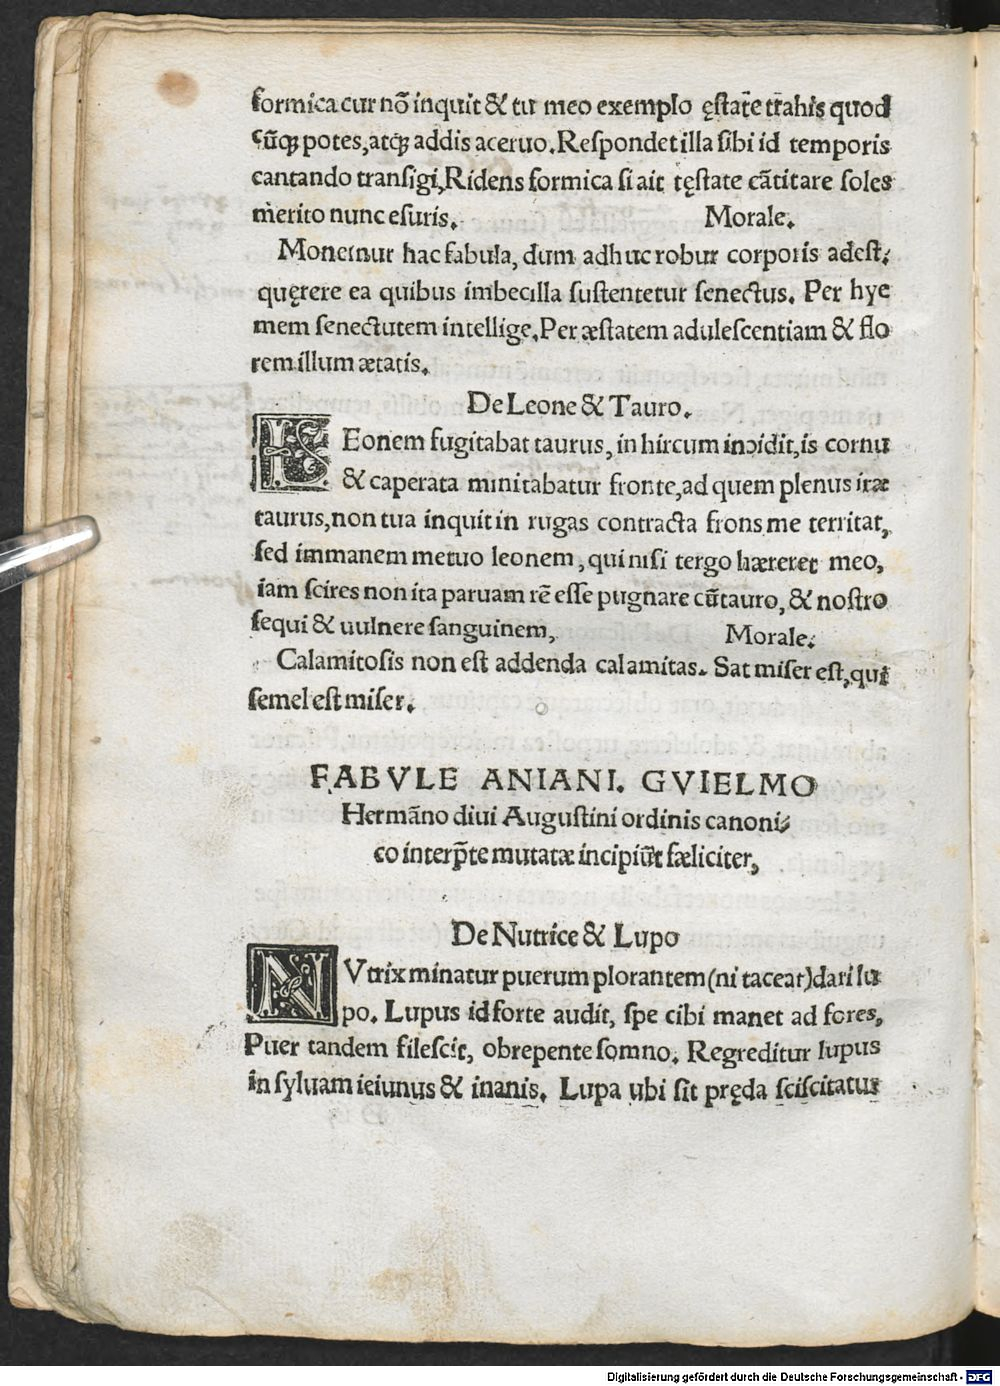 formica cur nō inquit & tu meo exemplo ęstate trahis quod
cūꝙ potes, atꝙ addis aceruo. Respondet illa sibi id temporis
cantando transigi, Ridens formica si ait ęstate cātitare soles
merito nunc esuris. Morale.
Monemur hac fabula, dum adhuc robur corporis adest:
quęrere ea quibus imbecilla sustentetur senectus. Per hye
mem senectutem intellige. Per æstatem adulescentiam & flo
rem illum ætatis.
De Leone & Tauro.
LEonem fugitabat taurus, in hircum incidit, is cornu
& caperata minitabatur fronte, ad quem plenus iræ
taurus, non tua inquit in rugas contracta frons me territat,
sed immanem metuo leonem, qui nisi tergo hæreret meo,
iam scires non ita paruam rē esse pugnare cū tauro, & nostro
sequi & uulnere sanguinem, Morale:
Calamitosis non est addenda calamitas. Sat miser est, qui
semel est miser.
FABVLE ANIANI. GVIELMO
Hermāno diui Augustini ordinis canoni⸗
co interp̄te mutatæ incipiūt fæliciter,
De Nutrice & Lupo
NVtrix minatur puerum plorantem (ni taceat) dari lu
po. Lupus id forte audit, spe cibi manet ad fores,
Puer tandem silescit, obrepente somno. Regreditur lupus
in syluam ieiunus & inanis. Lupa ubi sit pręda sciscitatur
Digitalisierung gefördert durch die Deutsche Forschungsgemeinschaft - DFG